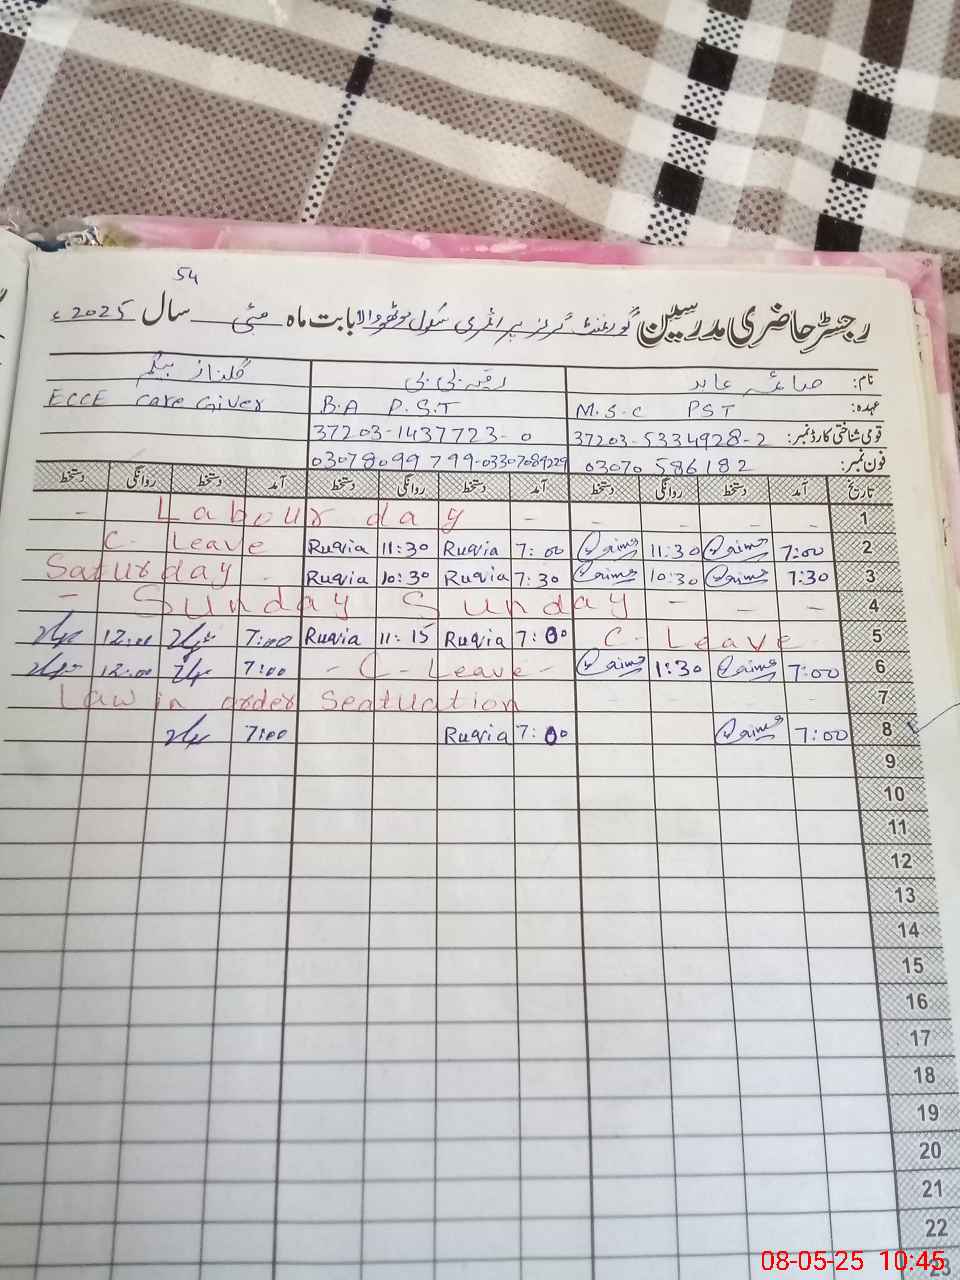 54
رجسٹر حاضری مدرسین گورنمنٹ گرلز پرائمری سکول موٹھوالا بابت ماہ مئی سال 2025ء
نام: صائمہ عابد رقیہ بی بی گلناز بیگم
عہدہ: M.S.C PST B.A P.S.T ECCE Care Giver
قومی شناختی کارڈ نمبر: 37203-5334928-2 37203-1437723-0
فون نمبر: 03070 586182 03078099799-03307089229
تاریخ آمد دستخط روانگی دستخط آمد دستخط روانگی دستخط آمد دستخط روانگی دستخط
1 - Labour day - - - - -
2 7:00 Saima 11:30 Saima 7:00 Ruqia 11:30 Ruqia C- Leave
3 7:30 Saima 10:30 Saima 7:30 Ruqia 10:30 Ruqia Saturday -
4 - Sunday Sunday - - -
5 C- Leave 7:00 Ruqia 11:15 Ruqia 7:00 12:00
6 7:00 Saima 1:30 Saima - C-Leave - 7:00 12:00
7 Law in order Seatuation
8 7:00 Saima 7:00 Ruqia 7:00
9
10
11
12
13
14
15
16
17
18
19
20
21
22
23
08-05-25 10:45